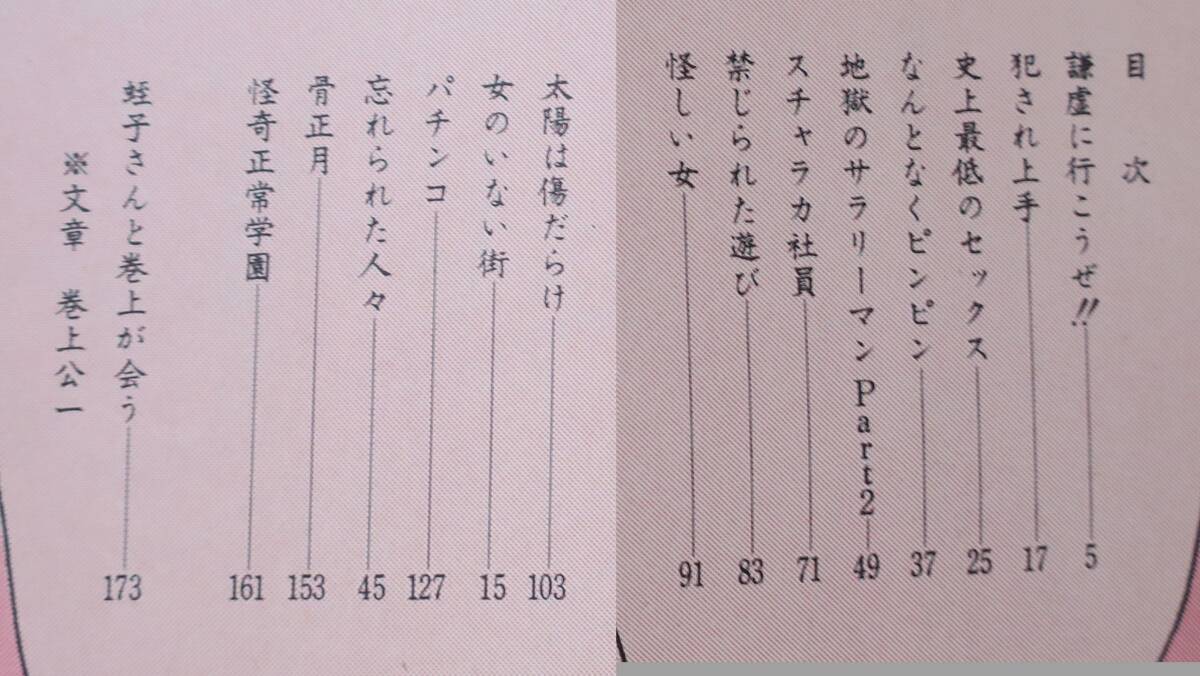 目次
謙虚に行こうぜ!! 5
犯され上手 17
史上最低のセックス 25
なんとなくピンピン 37
地獄のサラリーマンPart2 49
スチャラカ社員 71
禁じられた遊び 83
怪しい女 91
太陽は傷だらけ 103
女のいない街 15
パチンコ 127
忘れられた人々 45
骨正月 153
怪奇正常学園 161
蛭子さんと巻上が会う 173
※文章 巻上公一